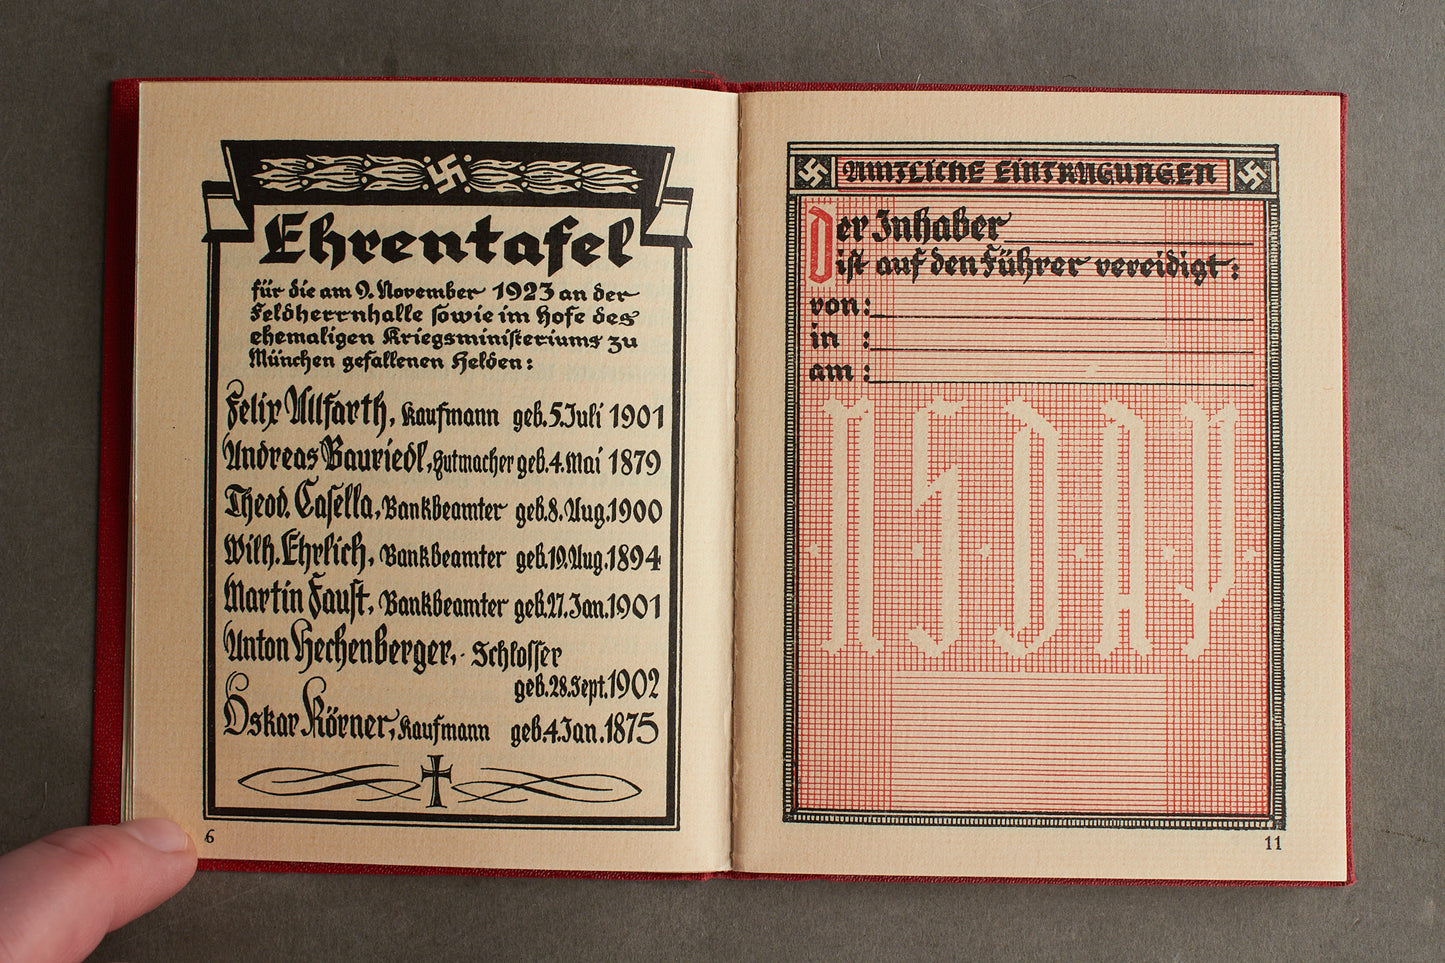 Ehrentafel
für die am 9. November 1923 an der
Feldherrnhalle sowie im Hofe des
ehemaligen Kriegsministeriums zu
München gefallenen Helden:
Felix Allfarth, Kaufmann geb. 5. Juli 1901
Andreas Bauriedl, Hutmacher geb. 4. Mai 1879
Theod. Casella, Bankbeamter geb. 8. Aug. 1900
Wilh. Ehrlich, Bankbeamter geb. 19. Aug. 1894
Martin Faust, Bankbeamter geb. 27. Jan. 1901
Anton Hechenberger, Schlosser
geb. 28. Sept. 1902
Oskar Körner, Kaufmann geb. 4. Jan. 1875
6
Amtliche Eintragungen
Der Inhaber
ist auf den Führer vereidigt:
von:
in :
am :
N.S.D.A.P.
11